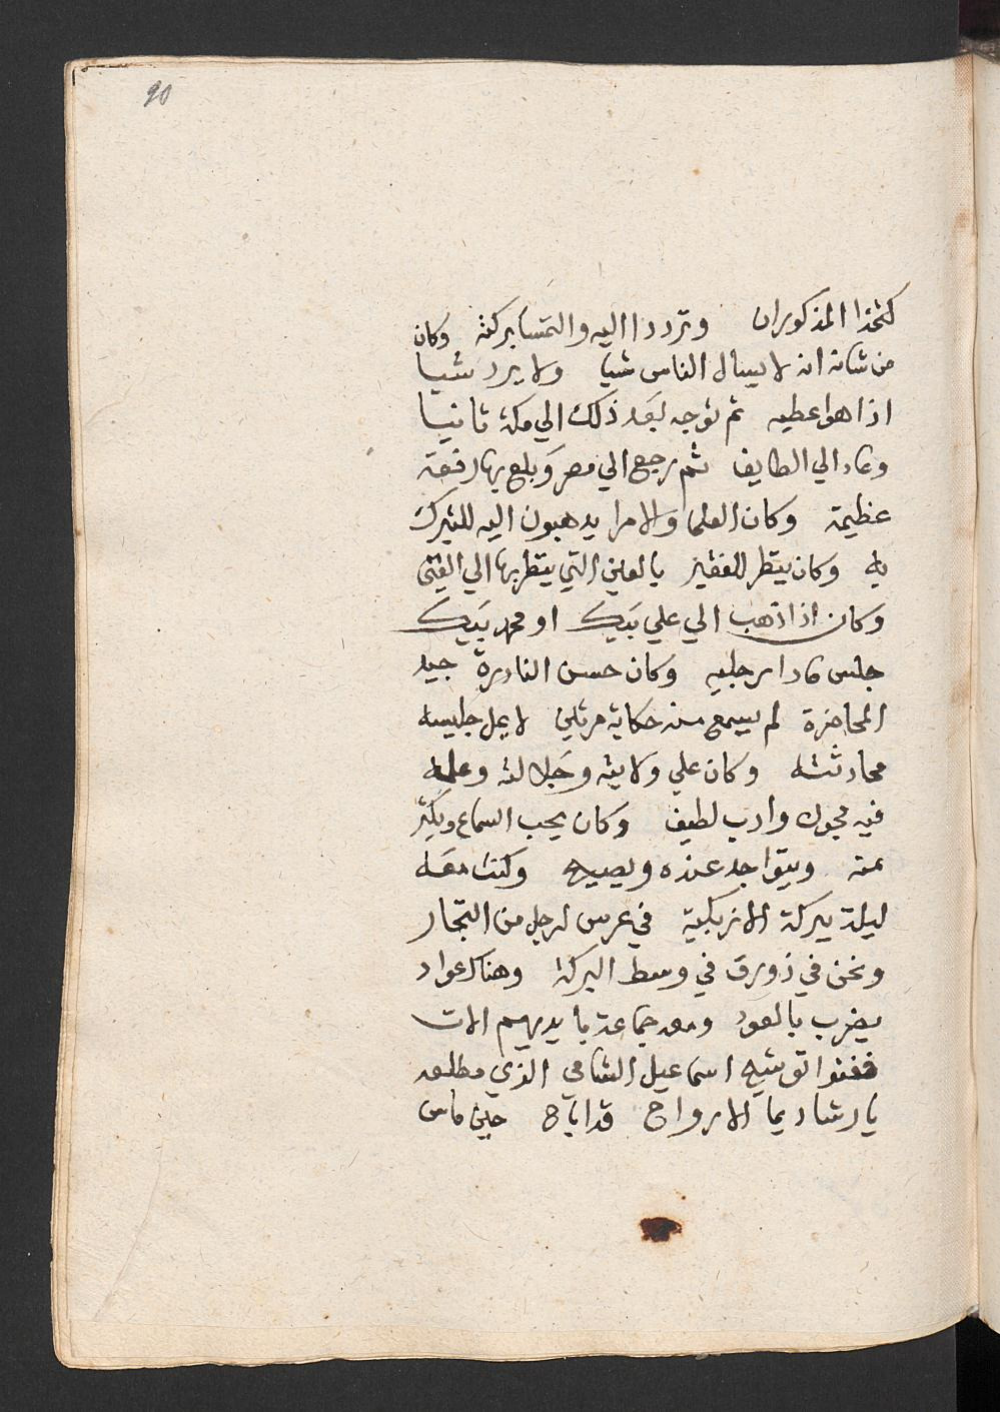 90
كتخذا المذكوران وترددا اليه والتمسا بركته وكان
من شانه انه لا يسال الناس شيا ولا يرد شيا
اذا هو اعطيه ثم توجه بعد ذلك الي مكة ثانيا
وعاد الي الطايف ثم رجع الي مصر وبلغ بها رفعة
عظيمة وكان العلما والامرا يدهبون اليه للتبرك
به وكان ينظر للفقير بالعين التي ينظر بها الي الغني
وكان اذا ذهب الي علي بيك او محمد بيك
جلس مادا رجليه وكان حسن النادرة جيد
المحاضرة لم يسمع منه حكاية مرتين لا يمل جليسه
محادثته وكان علي ولايته وجلالته وعلمه
فيه مجون وادب لطيف وكان يحب السماع ويكثر
منه ويتواجد عنده ويصيح وكنت معه
ليلة ببركة الازبكية في عرس لرجل من التجار
ونحن في زورق في وسط البركة وهناك عواد
يضرب بالعود ومعه جماعة بايديهم الات
فغنوا توشيح اسماعيل الشامي الذي مطلعه
يا رشا ريما الارواح قداباح حين ماس